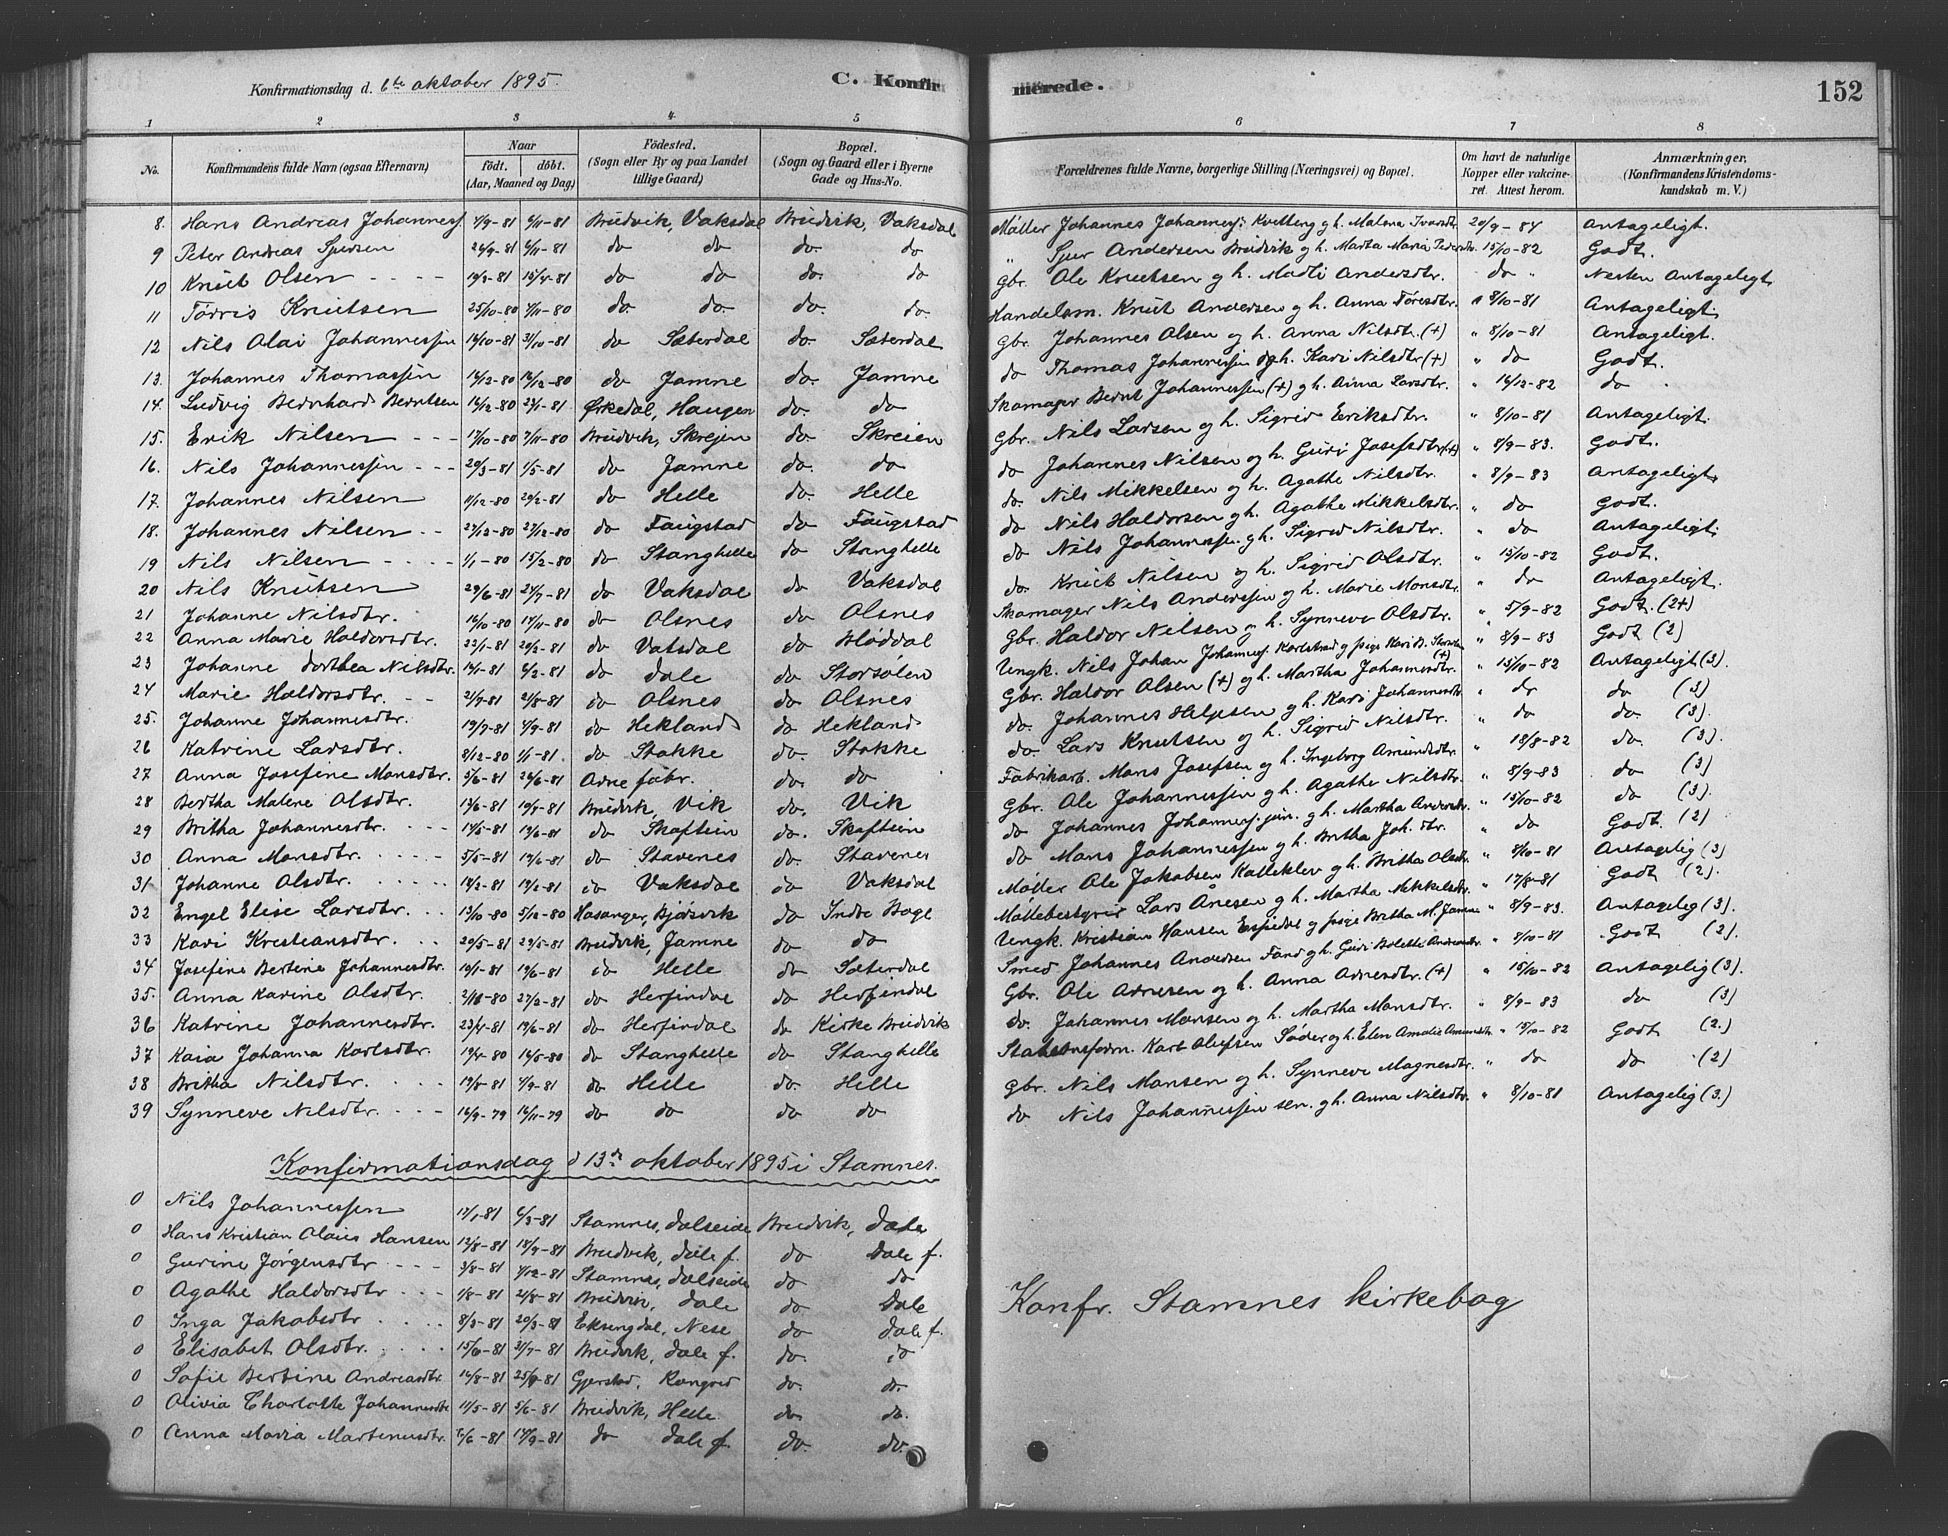 Konfirmationsdag d. 6te oktober 1895.
C. Konfirmerede.
152
1 2 3 4 5 6 7 8
No. Konfirmandens fulde Navn (ogsaa Efternavn) Naar født. døbt. (Aar, Maaned og Dag) Fødested. (Sogn eller By og paa Landet tillige Gaard) Bopæl. (Sogn og Gaard eller i Byerne Gade og Hus-No. Forældrenes fulde Navne, borgerlige Stilling (Næringsvei) og Bopæl. Om havt de naturlige Kopper eller vaccineret. Attest herom. Anmærkninger. (Konfirmandens Kristendomskundskab m. V.)
8. Hans Andreas Johannessj. 6/11-81 Bruvik, Vaksdal Bruvik, Vaksdal Møller Johannes Johannesj. Kvitberg g h. Malene Ivarsdtr 20/9-84 Antageligt.
9 Peter Andreas Sjursen 6/11-81 do do do do " Sjur Andersen Bruvik g h. Martha Maria Pedersdtr. 15/10-82 Godt.
10 Knut Olsen 15/4-81 do do do. do gbr. Ole Knutsen g h. Madli Andersdtr. do " Nesten Antageligt
11 Tørris Knutsen 25/10-80 7/11-80 do. do. do. do. Handelsm. Knut Andersen g h. Anna Toresdtr. " 8/10-81 Antageligt
12 Nils Olai Johannessen 16/10-81 31/10-81 do Sæterdal do. Sæterdal gbr. Johannes Olsen g h. Anna Nilsdtr. (+) " 8/10-81 Antageligt.
13. Johannes Thomassen 14/12-80 do Jamne do. Jamne do Thomas Johannessen g h. Kari Nilsdtr (+) " do Godt.
14. Ludvig Bernhard Berntsen 23/1-81 Ørkedal, Haugen do. do Skomager Bernt Johannessen (+) g h. Anna Larsdtr. " 16/12-82 do
15. Erik Nilsen 17/10-80 7/11-80 Bruvik, Skrejen do Skreien Gbr. Nils Larsen g h. Sigrid Eriksdtr. " 8/10-81 Antageligt.
16. Nils Johannessen 20/3-81 1/5-81 do Jamne do. do do Johannes Nilsen og h. Guri Josefsdtr (+) " 8/9-83. Godt.
17. Johannes Nilsen 11/12-80 20/2-81 do Helle do. Helle do. Nils Mikkelsen g h. Agathe Nilsdtr. " 8/9-83 Antageligt.
18. Johannes Nilsen 27/12-80 do Faugstad do Faugstad do Nils Haldorsen g h. Agathe Mikkelsdtr. " do Godt.
19 Nils Nilsen 1/1-80 15/2-80 do Stanghelle do Stanghelle do Nils Johannessen. g h. Sigrid Nilsdtr. " do Antageligt.
20 Nils Knutsen 29/6-81 24/7-81 do Vaksdal do Vaksdal do. Knut Nilsen g h. Sigrid Olsdtr. " 15/10-82 Godt.
21 Johanne Nilsdtr. 16/10-80 14/11-80 do Olsnes do Olsnes Skomager Nils Anderssen g h. Marie Monsdtr. " do Antageligt.
22 Anna Marie Haldorsdtr. 22/1-81 20/2-81 do Vatsdal do Høddal Gbr. Haldor Nilsen g h. Synneve Olsdtr. " 5/9-82 Godt. (2+)
23 Johanne Dorthea Nilsdtr. 14/1-81 6/2-81 do Dale do Storsølen Ungk. Nils Johan Johannesj. Karlstrad g pige Kari (+) " 8/9-83 Godt (2)
24 Marie Haldorsdtr. 2/7-81 21/8-81 do Olsnes do Olsnes Gbr. Haldor Olsen (+) g h. Martha Johannesdtr. " 15/10-82 Antageligt (3).
25. Johanne Johannesdtr. 19/7-81 4/9-81 do Hekland do Hekland do. Johannes Helgesen g h. Kari Johannesdtr. " do do (3)
26 Katrine Larsdtr. 8/12-80 1/1-81. do Stokke do. Stokke do. Lars Knutsen g h. Sigrid Nilsdtr. " do do. (3).
27 Anna Josefine Monsdtr. 5/6-81 26/6-81 Adne fabr. do. do Fabrikarb. Mons Josefsen g h. Ingeborg Amundsdtr. " 18/8-82 do. (3.)
28 Bertha Malene Olsdtr. Bruvik, Vik do. Vik Gbr. Ole Johannessen g h. Agathe Nilsdtr. " 8/9-83 do (3)
29 Britha Johannesdtr. 19/6-81 do Skaftein do. Skaftein do Johannes Johannesj. jun. g h. Martha Andersdtr. " 15/10-82 do (3.)
30 Anna Monsdtr. 5/5-81 19/6-81 do Stavenes do. Stavenes do Mons Johannessen g h. Britha Joh. dtr. " do Godt. (2)
31 Johanne Olsdtr. do Vaksdal do Vaksdal Møller Ole Jakobsen Kalleklev g h. Britha Olsdtr. " 8/10-81 Antagelig (3)
32 Engel Elise Larsdtr. 13/10-80 5/12-80 Hosanger, Bjørsvik do Indre Boge Møllebestyrer Lars Ånesen g h. Martha Mikkelsdtr. " 17/8-81 Godt (2).
33 Kari Kristiansdtr. 20/5-81 29/5-81 Bruvik, Jamne do do Ungk. Kristian Hansen Espedal g pige Britha M. Jamne " 8/9-83. Antagelig (3).
34 Josefine Bertine Johannesdtr. 19/6-81 do Helle do Sæterdal Smed Johannes Andersen Fand g h. Guri Bolette Andersdtr. " 8/10-81 Godt (2)
35. Anna Karine Olsdtr. 27/2-81 do Herfindal do Herfindal Gbr. Ole Adnesen g h. Anna Adnesdtr. (+) " 15/10-82 Antagelig (3).
36 Katrine Johannesdtr. 23/4-81 19/6-81 do Herfindal do Kirke Bruvik do. Johannes Monsen g h. Martha Monsdtr. " 8/9-83 do (3)
37 Kaia Johanna Karlsdtr. 19/4-80 16/5-80 do Stanghelle do Stanghelle Stationsform. Karl Olufsen Søder g h. Elen Amalie Amundsdtr. " 15/10-82 Godt (2.)
38 Britha Nilsdtr. 4/9-81 do Helle do. Helle Gbr. Nils Monsen g h. Synneve Magnesdtr. " do do (2)
39 Synneve Nilsdtr. 16/9-79 16/11-79 do do do do do Nils Johannessen sen. g h. Anna Nilsdtr. " 8/10-81 Antagelig (3.)
Konfirmationsdag d 13de oktober 1895 i Stamnes.
0 Nils Johannessen 17/1-81 6/3-81 Stamnes, Dalseide Bruvik, Dale
0 Hans Kristian Olaus Hansen 12/8-81 18/9-81 Bruvik, Dale f. do Dale f.
0 Gurine Jørgensdtr 3/8-81 Stamnes, Dalseide do do
0 Agathe Haldorsdtr 1/8-81 21/8-81 Bruvik, Dale do Dale
0 Inga Jakobsdtr 8/3-81 20/3-81 Eksingdal, Nese do Dale f.
0 Elisabet Olsdtr. 15/6-81 31/7-81 Bruvik, Dale f. do. do
0 Sofie Bertine Andreasdtr. 14/8-81 Gjerstad, do. do.
0 Olivia Charlotte Johannesdtr 11/5-81 5/6-81 Bruvik, Helle do. do.
0 Anna Maria Martinusdtr. do Dale f. do. do.
Konfr. Stamnes kirkebog